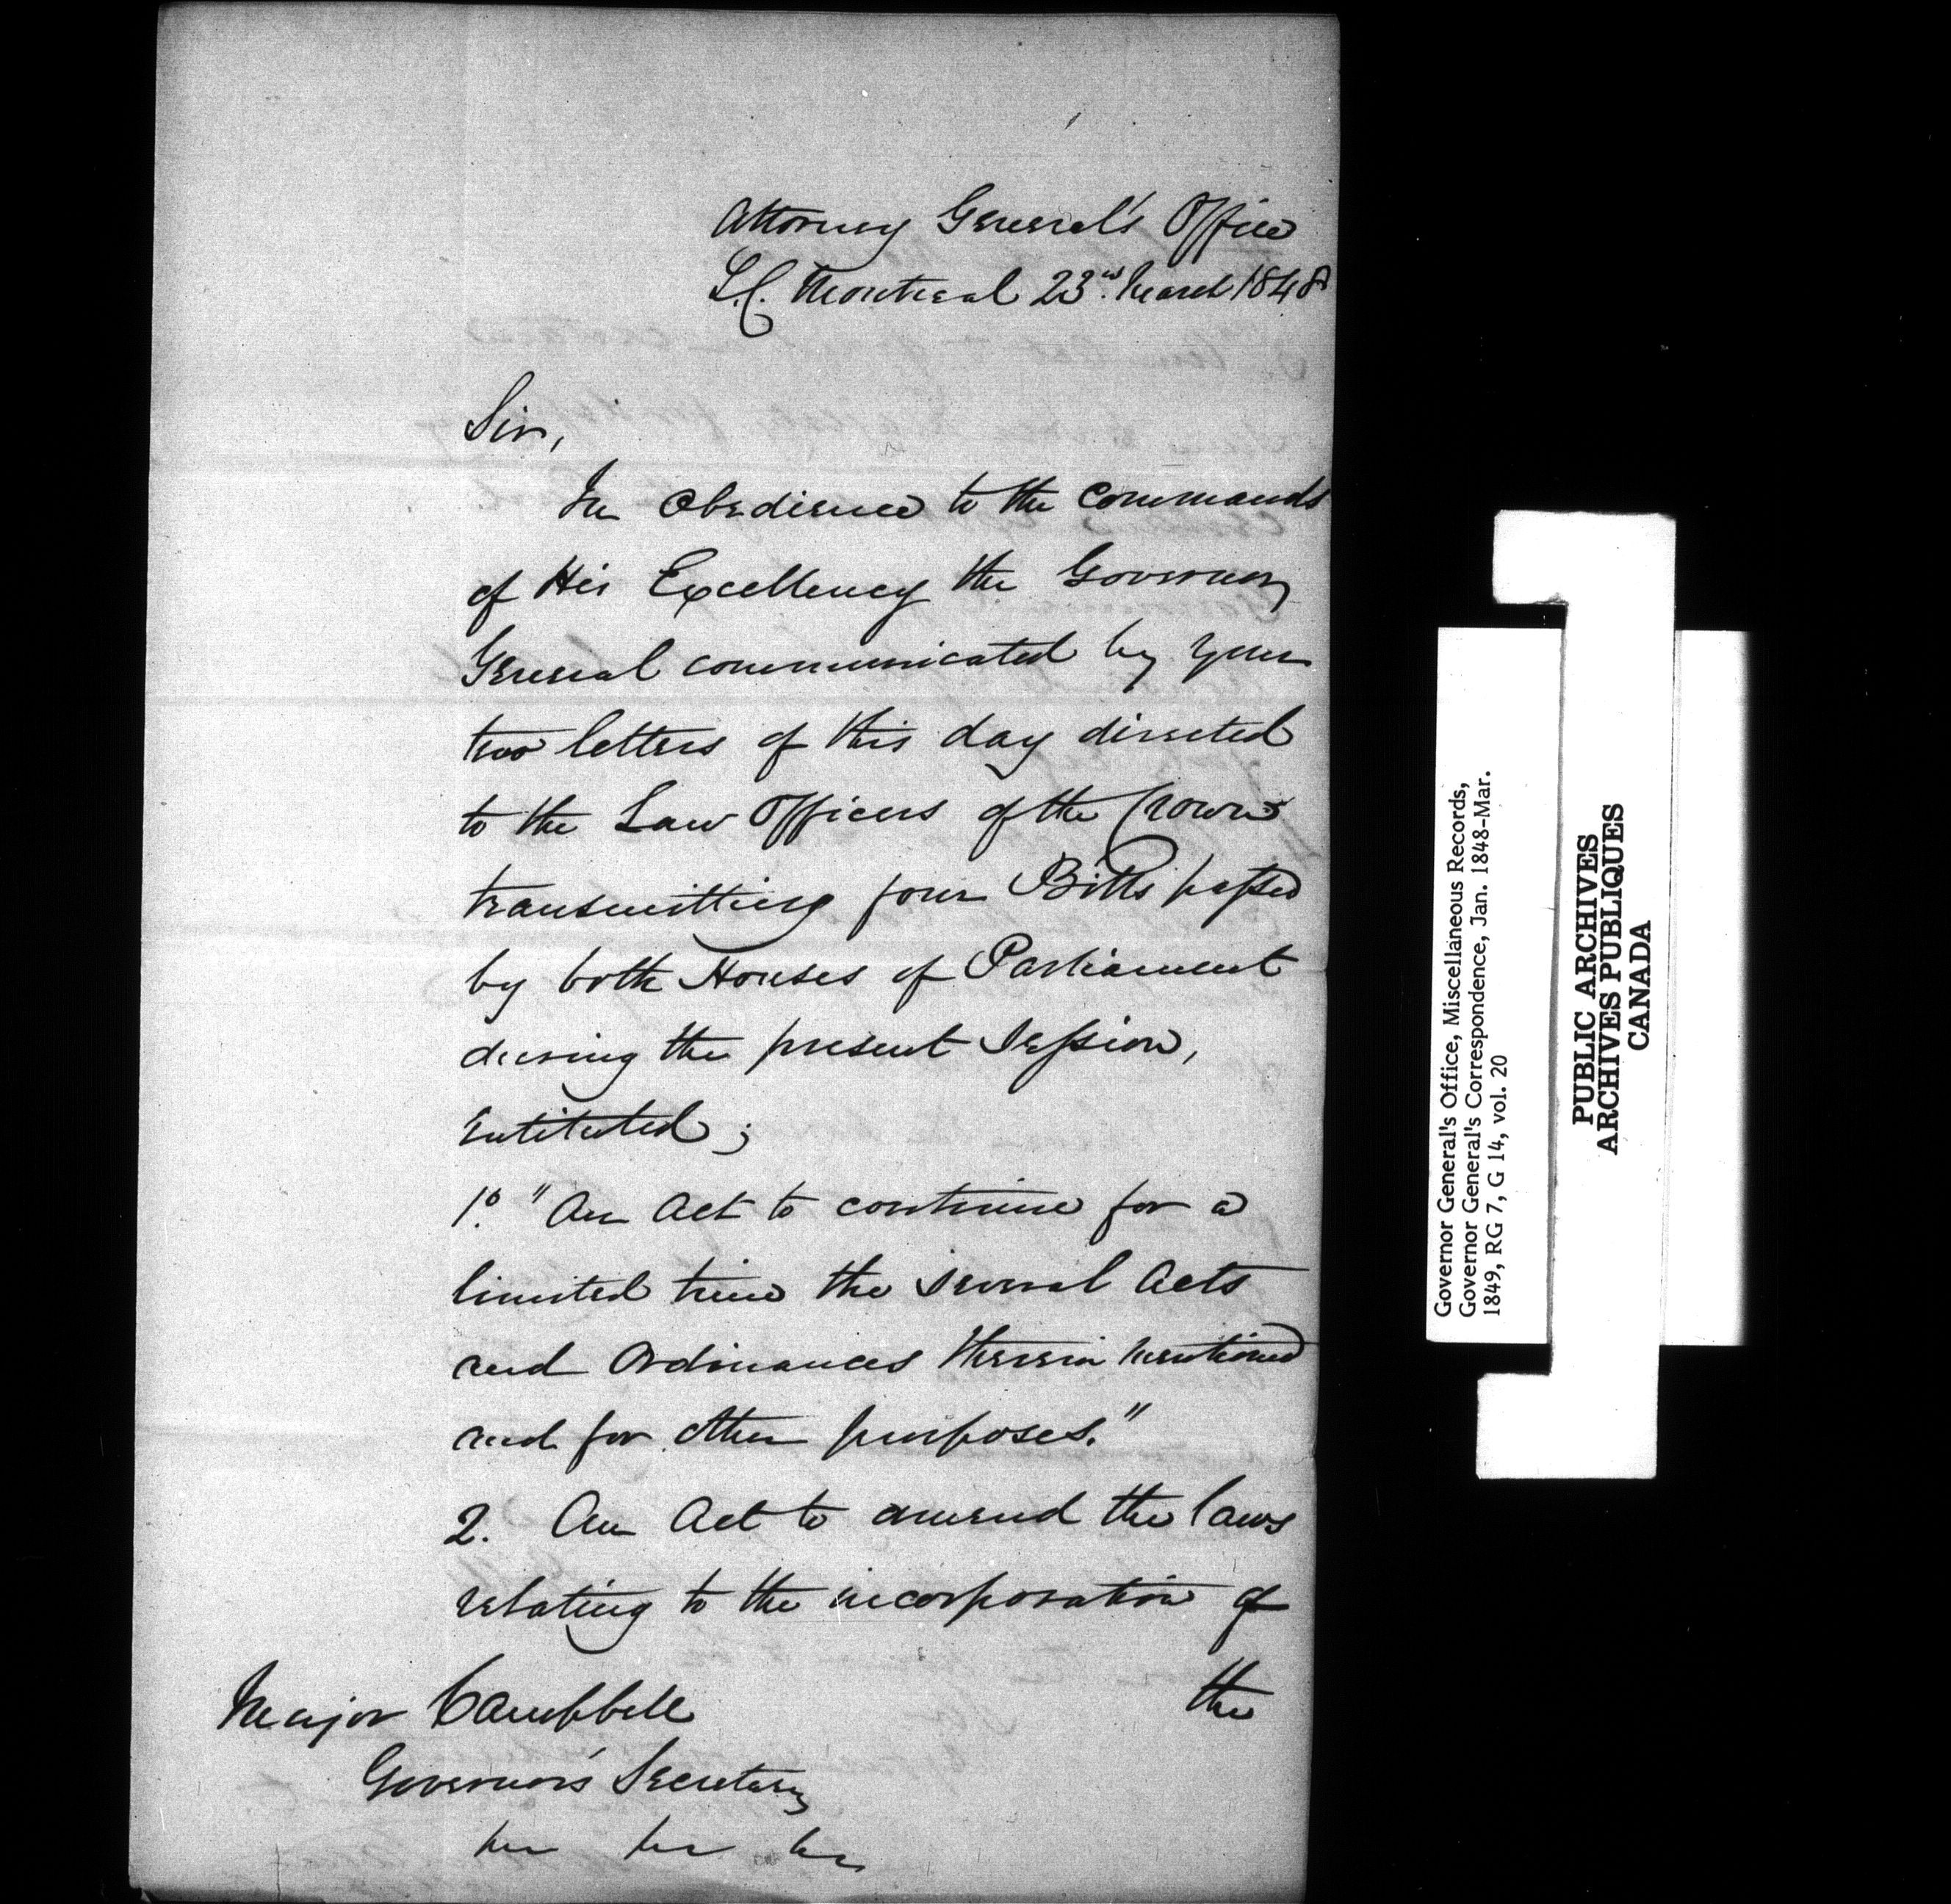 Attorney General's Office
L.C. Montreal 23rd. March 1848
Sir,
In Obedience to the Commands
of His Excellency the Governor
General communicated by your
two letters of this day directed
to the Law Officers of the Crown
transmitting four Bills passed
by both Houses of Parliament
during the present Session,
entituled;
1o. "An Act to continue for a
limited time the several Acts
and Ordinances therein mentioned
and for other purposes."
2. An Act to amend the laws
relating to the incorporation of
the
Major Campbell
Governor's Secretary
Governor General's Office, Miscellaneous Records,
Governor General's Correspondence, Jan. 1848-Mar.
1849, RG 7, G 14, vol. 20
PUBLIC ARCHIVES
ARCHIVES PUBLIQUES
CANADA